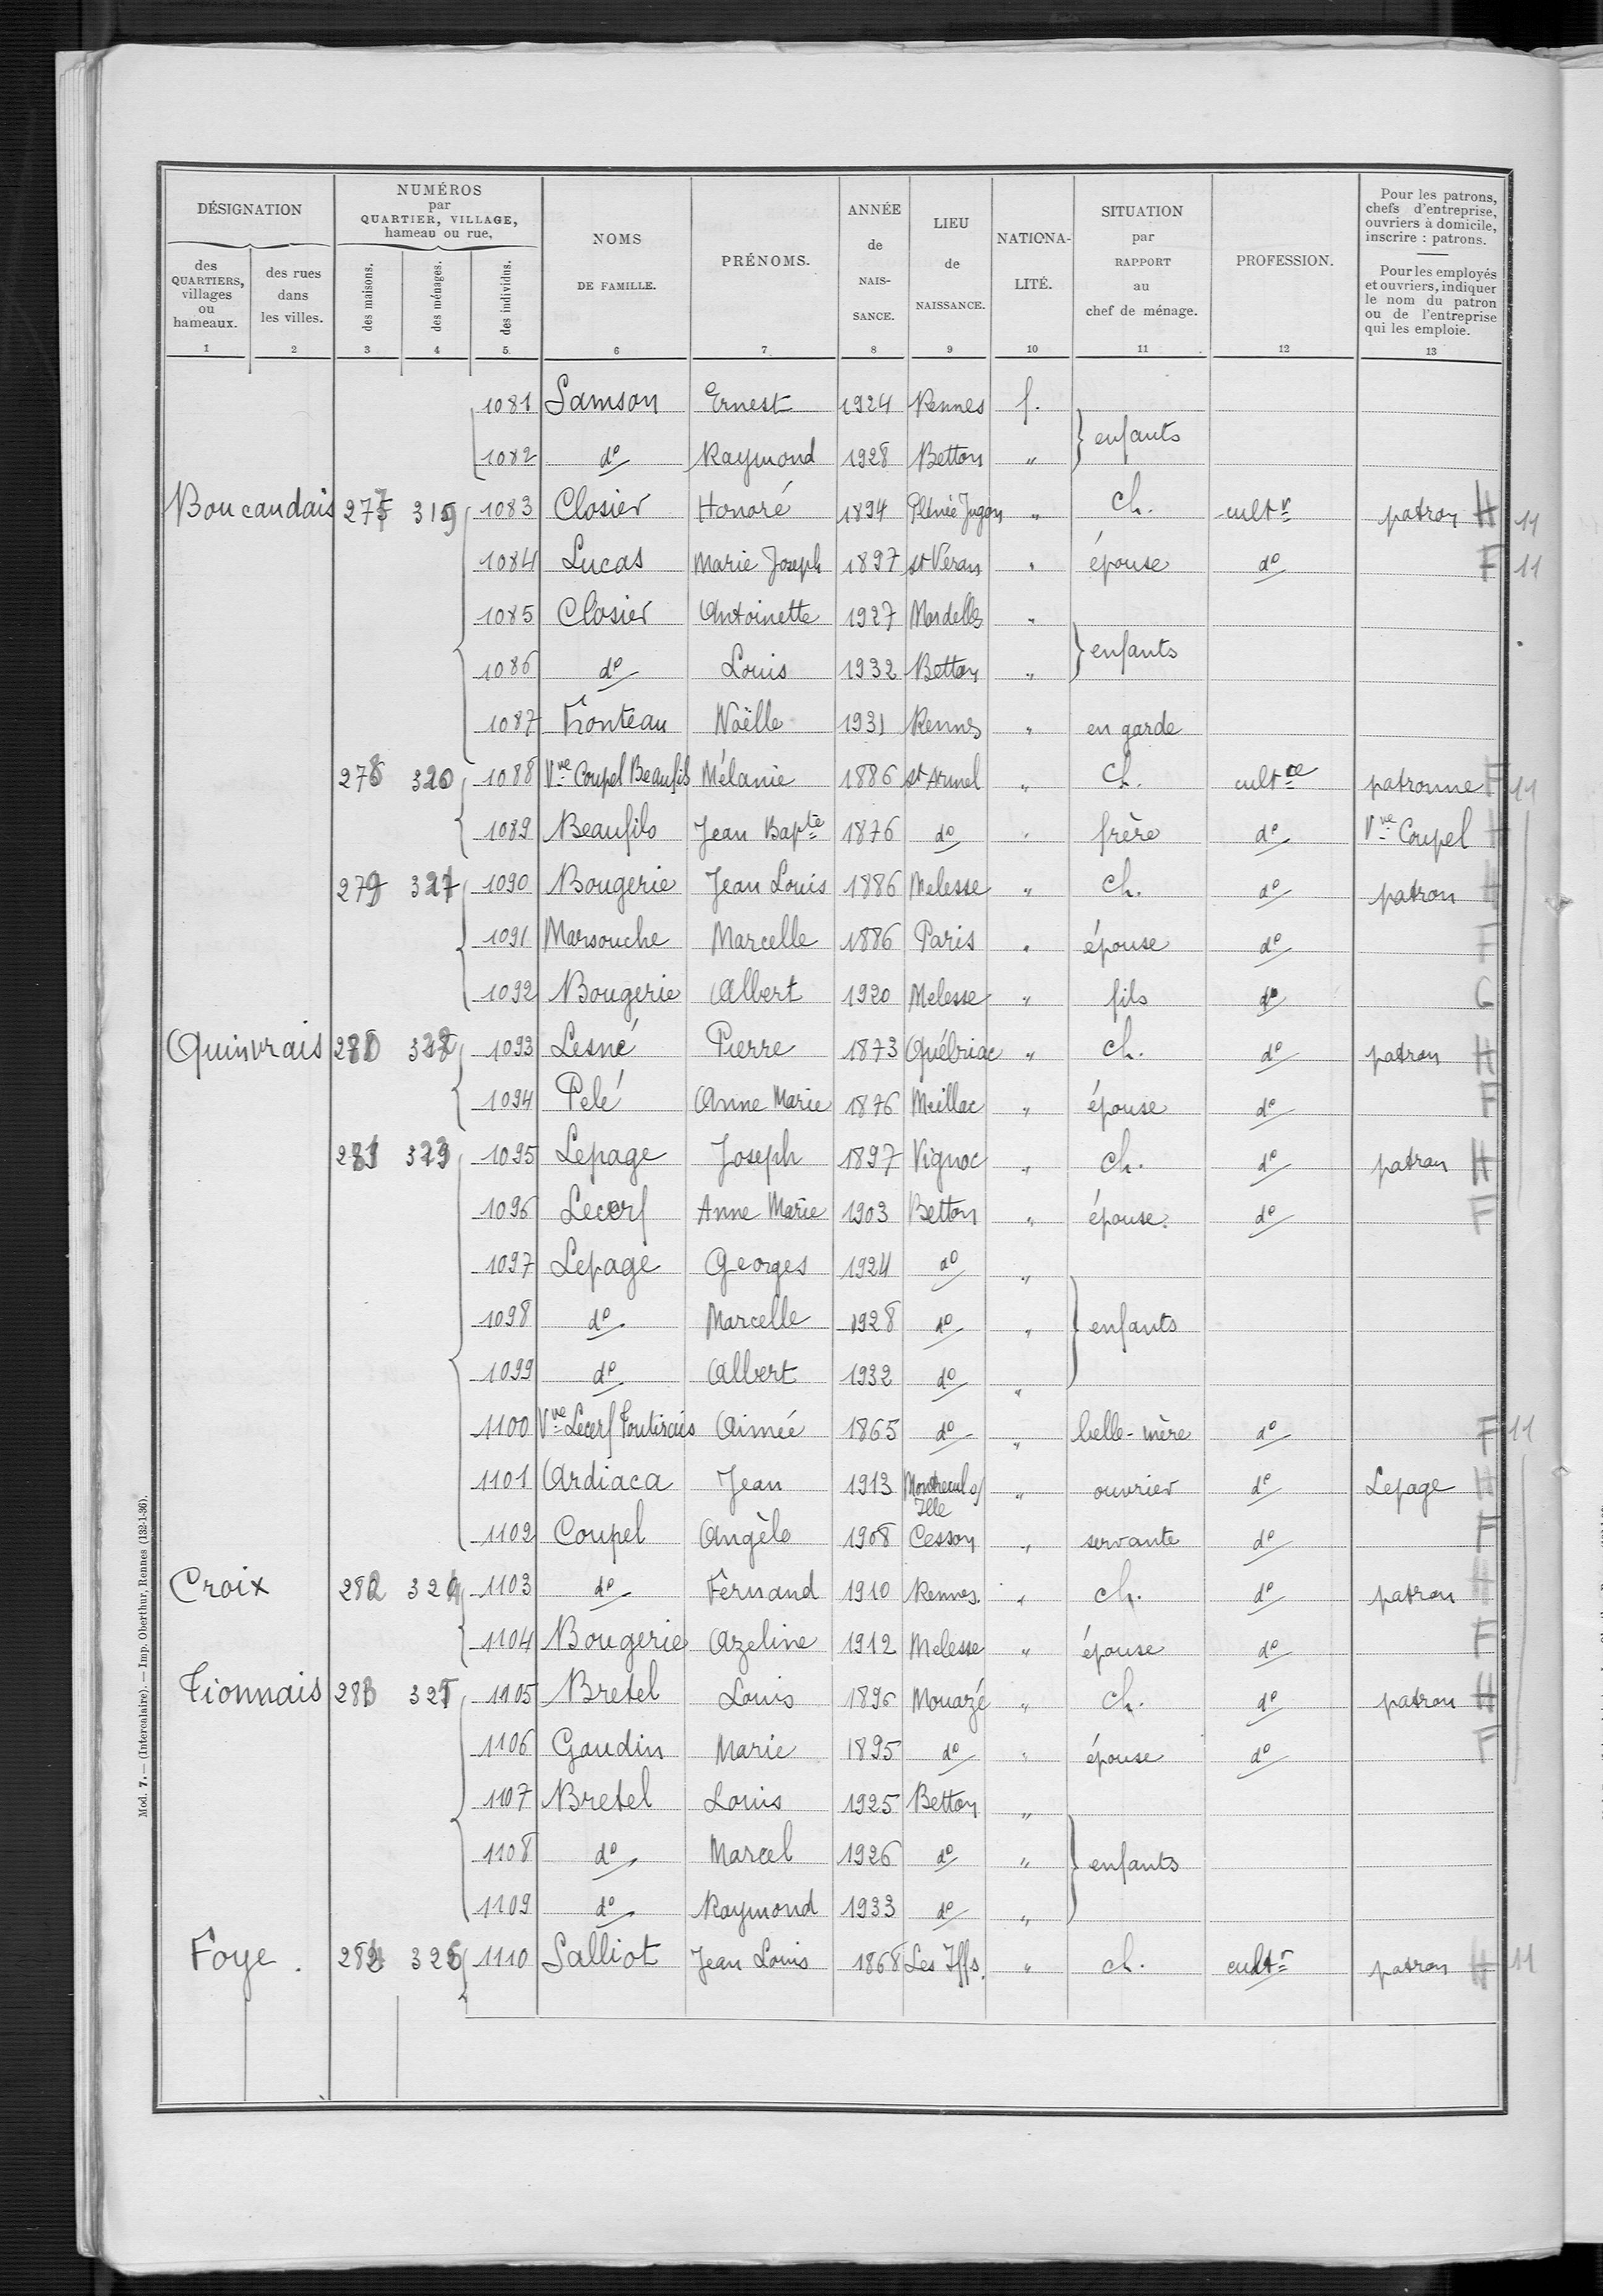 DÉSIGNATION
des QUARTIERS, villages ou hameaux.
des rues dans les villes.
NUMÉROS par QUARTIER, VILLAGE, hameau ou rue.
des maisons.
des ménages.
des individus.
NOMS DE FAMILLE.
PRÉNOMS.
ANNÉE de NAIS-SANCE.
LIEU de NAISSANCE.
NATIONA-LITÉ.
SITUATION par RAPPORT au chef de ménage.
PROFESSION.
Pour les patrons, chefs d'entreprise, ouvriers à domicile, inscrire : patrons.
Pour les employés et ouvriers, indiquer le nom du patron ou de l'entreprise qui les emploie.
1 2 3 4 5 6 7 8 9 10 11 12 13
1081 Samson Ernest 1924 Rennes f.
enfants
1082 do Raymond 1928 Betton "
Boucaudais 277 319 1083 Closier Honoré 1894 Plénée Jugon " ch. cultr patron H 11
1084 Lucas Marie Joseph 1897 st Véran " épouse do F 11
1085 Closier Antoinette 1927 Mordelles "
enfants
1086 do Louis 1932 Betton "
1087 Honteau Noëlle 1931 Rennes " en garde
278 320 1088 Vve Coupel Beaufils Mélanie 1886 st Armel " Ch. cultce patronne F 11
1089 Beaufils Jean Bapte 1876 do " frère do Vve Coupel H
279 321 1090 Bougerie Jean Louis 1886 Melesse " ch. do patron H
1091 Marsouche Marcelle 1886 Paris " épouse do F
1092 Bougerie Albert 1920 Melesse " fils do G
Quinvrais 280 322 1093 Lesné Pierre 1873 Québriac " ch. do patron H
1094 Pelé Anne Marie 1876 Meillac " épouse do F
281 323 1095 Lepage Joseph 1897 Vignoc " ch. do patron H
1096 Lecerf Anne Marie 1903 Betton " épouse. do F
1097 Lepage Georges 1924 do "
1098 do Marcelle 1928 do " enfants
1099 do Albert 1932 do "
1100 Vve Lecerf Toutirais Aimée 1865 do " belle-mère do F 11
1101 Ardiaca Jean 1913 Montreuil s/ Ille " ouvrier do Lepage H
1102 Coupel Angèle 1908 Cesson " servante do F
Croix 282 324 1103 do Fernand 1910 Rennes. " ch. do patron H
1104 Bougerie Azeline 1912 Melesse " épouse do F
Tionnais 283 325 1105 Bretel Louis 1896 Mouazé " ch. do patron H
1106 Gaudin Marie 1895 do " épouse do F
1107 Bretel Louis 1925 Betton "
1108 do Marcel 1926 do " enfants
1109 do Raymond 1933 do "
Foye. 284 326 1110 Salliot Jean Louis 1868 Les Iffs. " ch. cultr patron H 11
Mod. 7. — (Intercalaire). — Imp. Oberthur, Rennes (132-1-36).